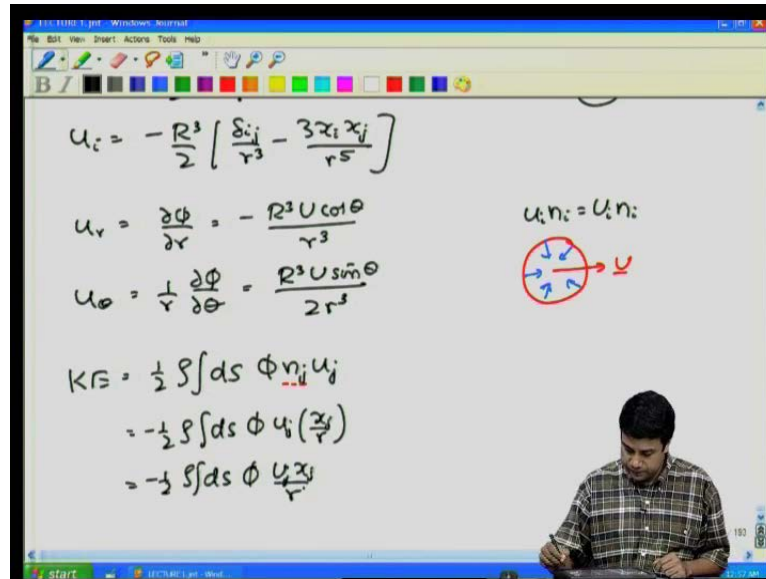 LECTURE1.jnt - Windows Journal
File Edit View Insert Actions Tools Help
B I
u_i = - R³/2 [ δ_ij/r³ - 3x_i x_j/r⁵ ]
u_r = ∂φ/∂r = - R³ U cosθ/r³
u_i n_i = U_i n_i
U
u_θ = 1/r ∂φ/∂θ = R³ U sinθ/2r³
KE = 1/2 ρ∫ds φ n_j u_j
= -1/2 ρ∫ds φ u_j (x_j/r)
= -1/2 ρ∫ds φ U_j x_j/r
start LECTURE1.jnt - Wind... 12:57 AM